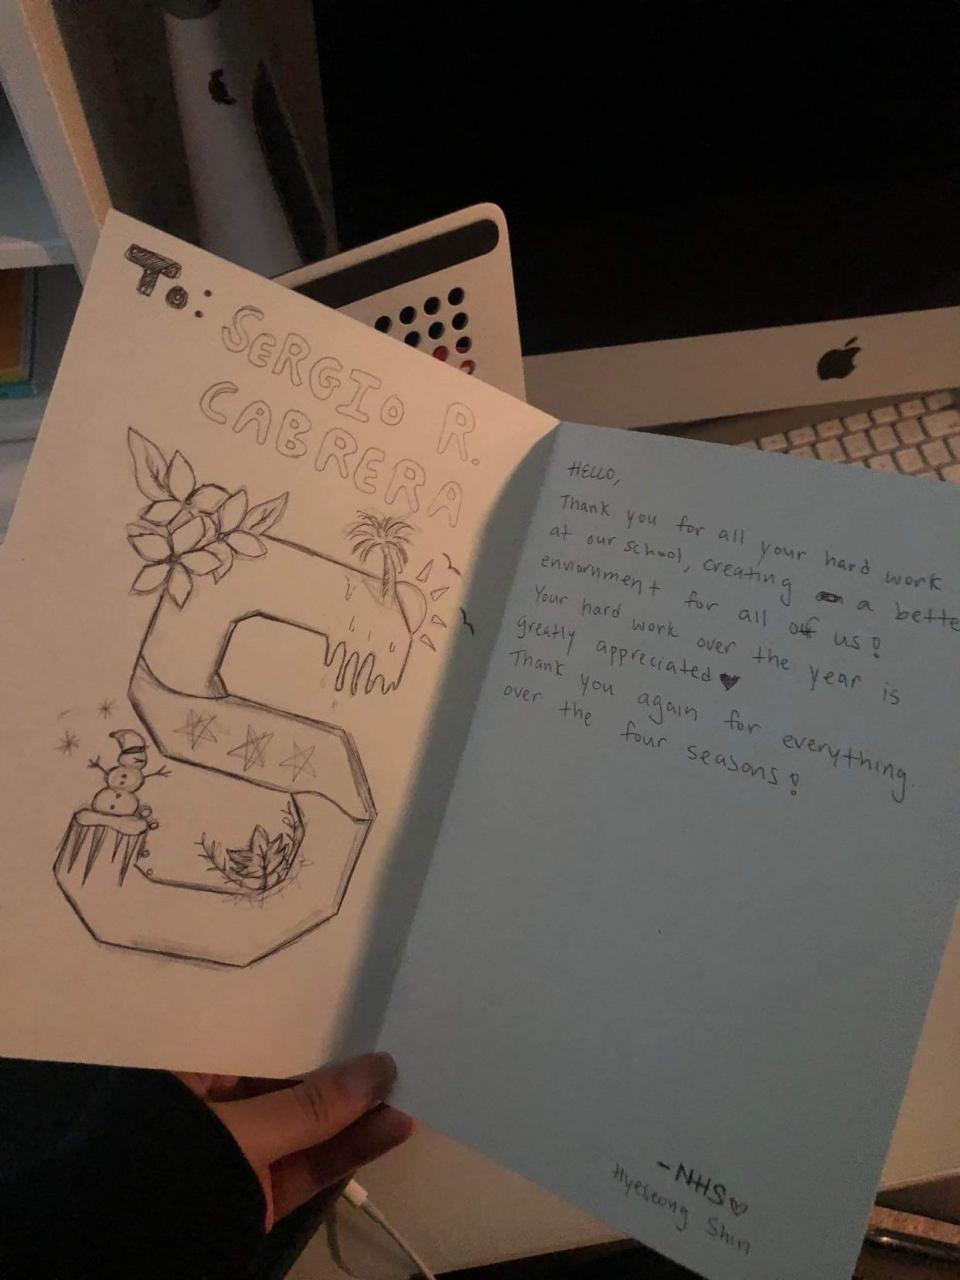 To: SERGIO R.
CABRERA
HELLO,
Thank you for all your hard work
at our school, creating a bette
enviornment for all of us!
Your hard work over the year is
greatly appreciated♥
Thank you again for everything.
over the four seasons!
-NHS♡
Hyeseong Shin